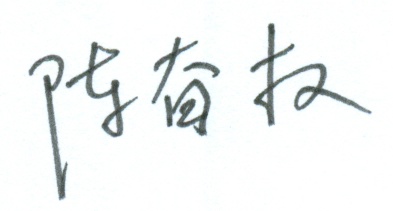 陈奋权